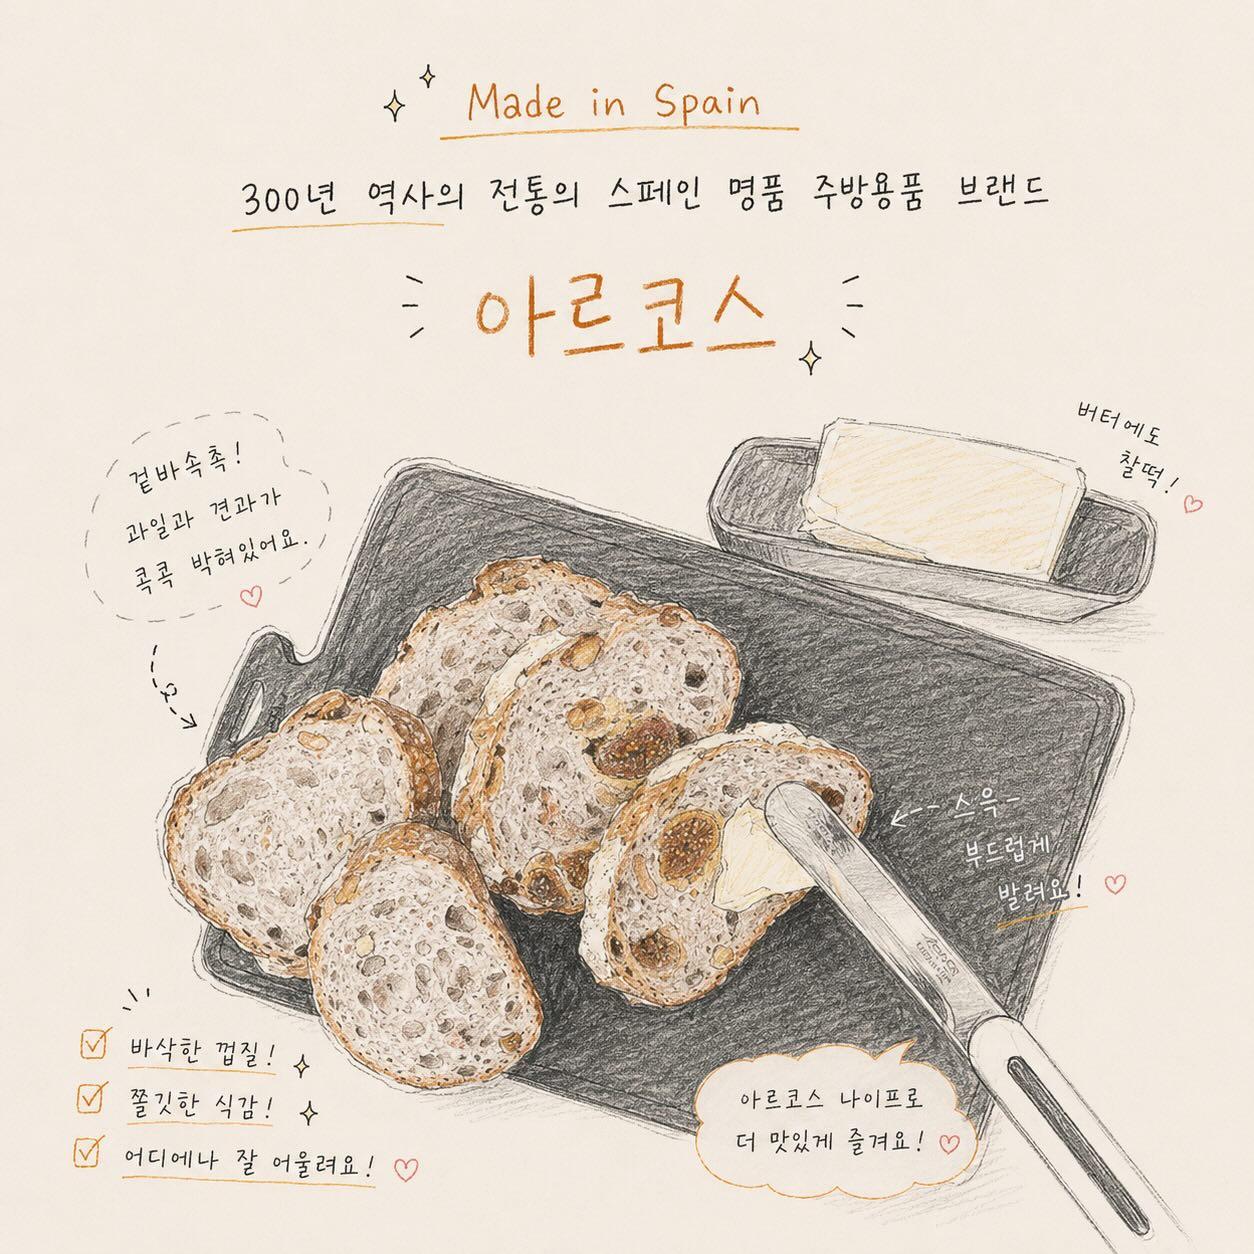 Made in Spain
300년 역사의 전통의 스페인 명품 주방용품 브랜드
아르코스
겉바속촉!
과일과 견과가
콕콕 박혀있어요.
버터에도
찰떡!
스윽-
부드럽게
발려요!
바삭한 껍질!
쫄깃한 식감!
어디에나 잘 어울려요!
아르코스 나이프로
더 맛있게 즐겨요!